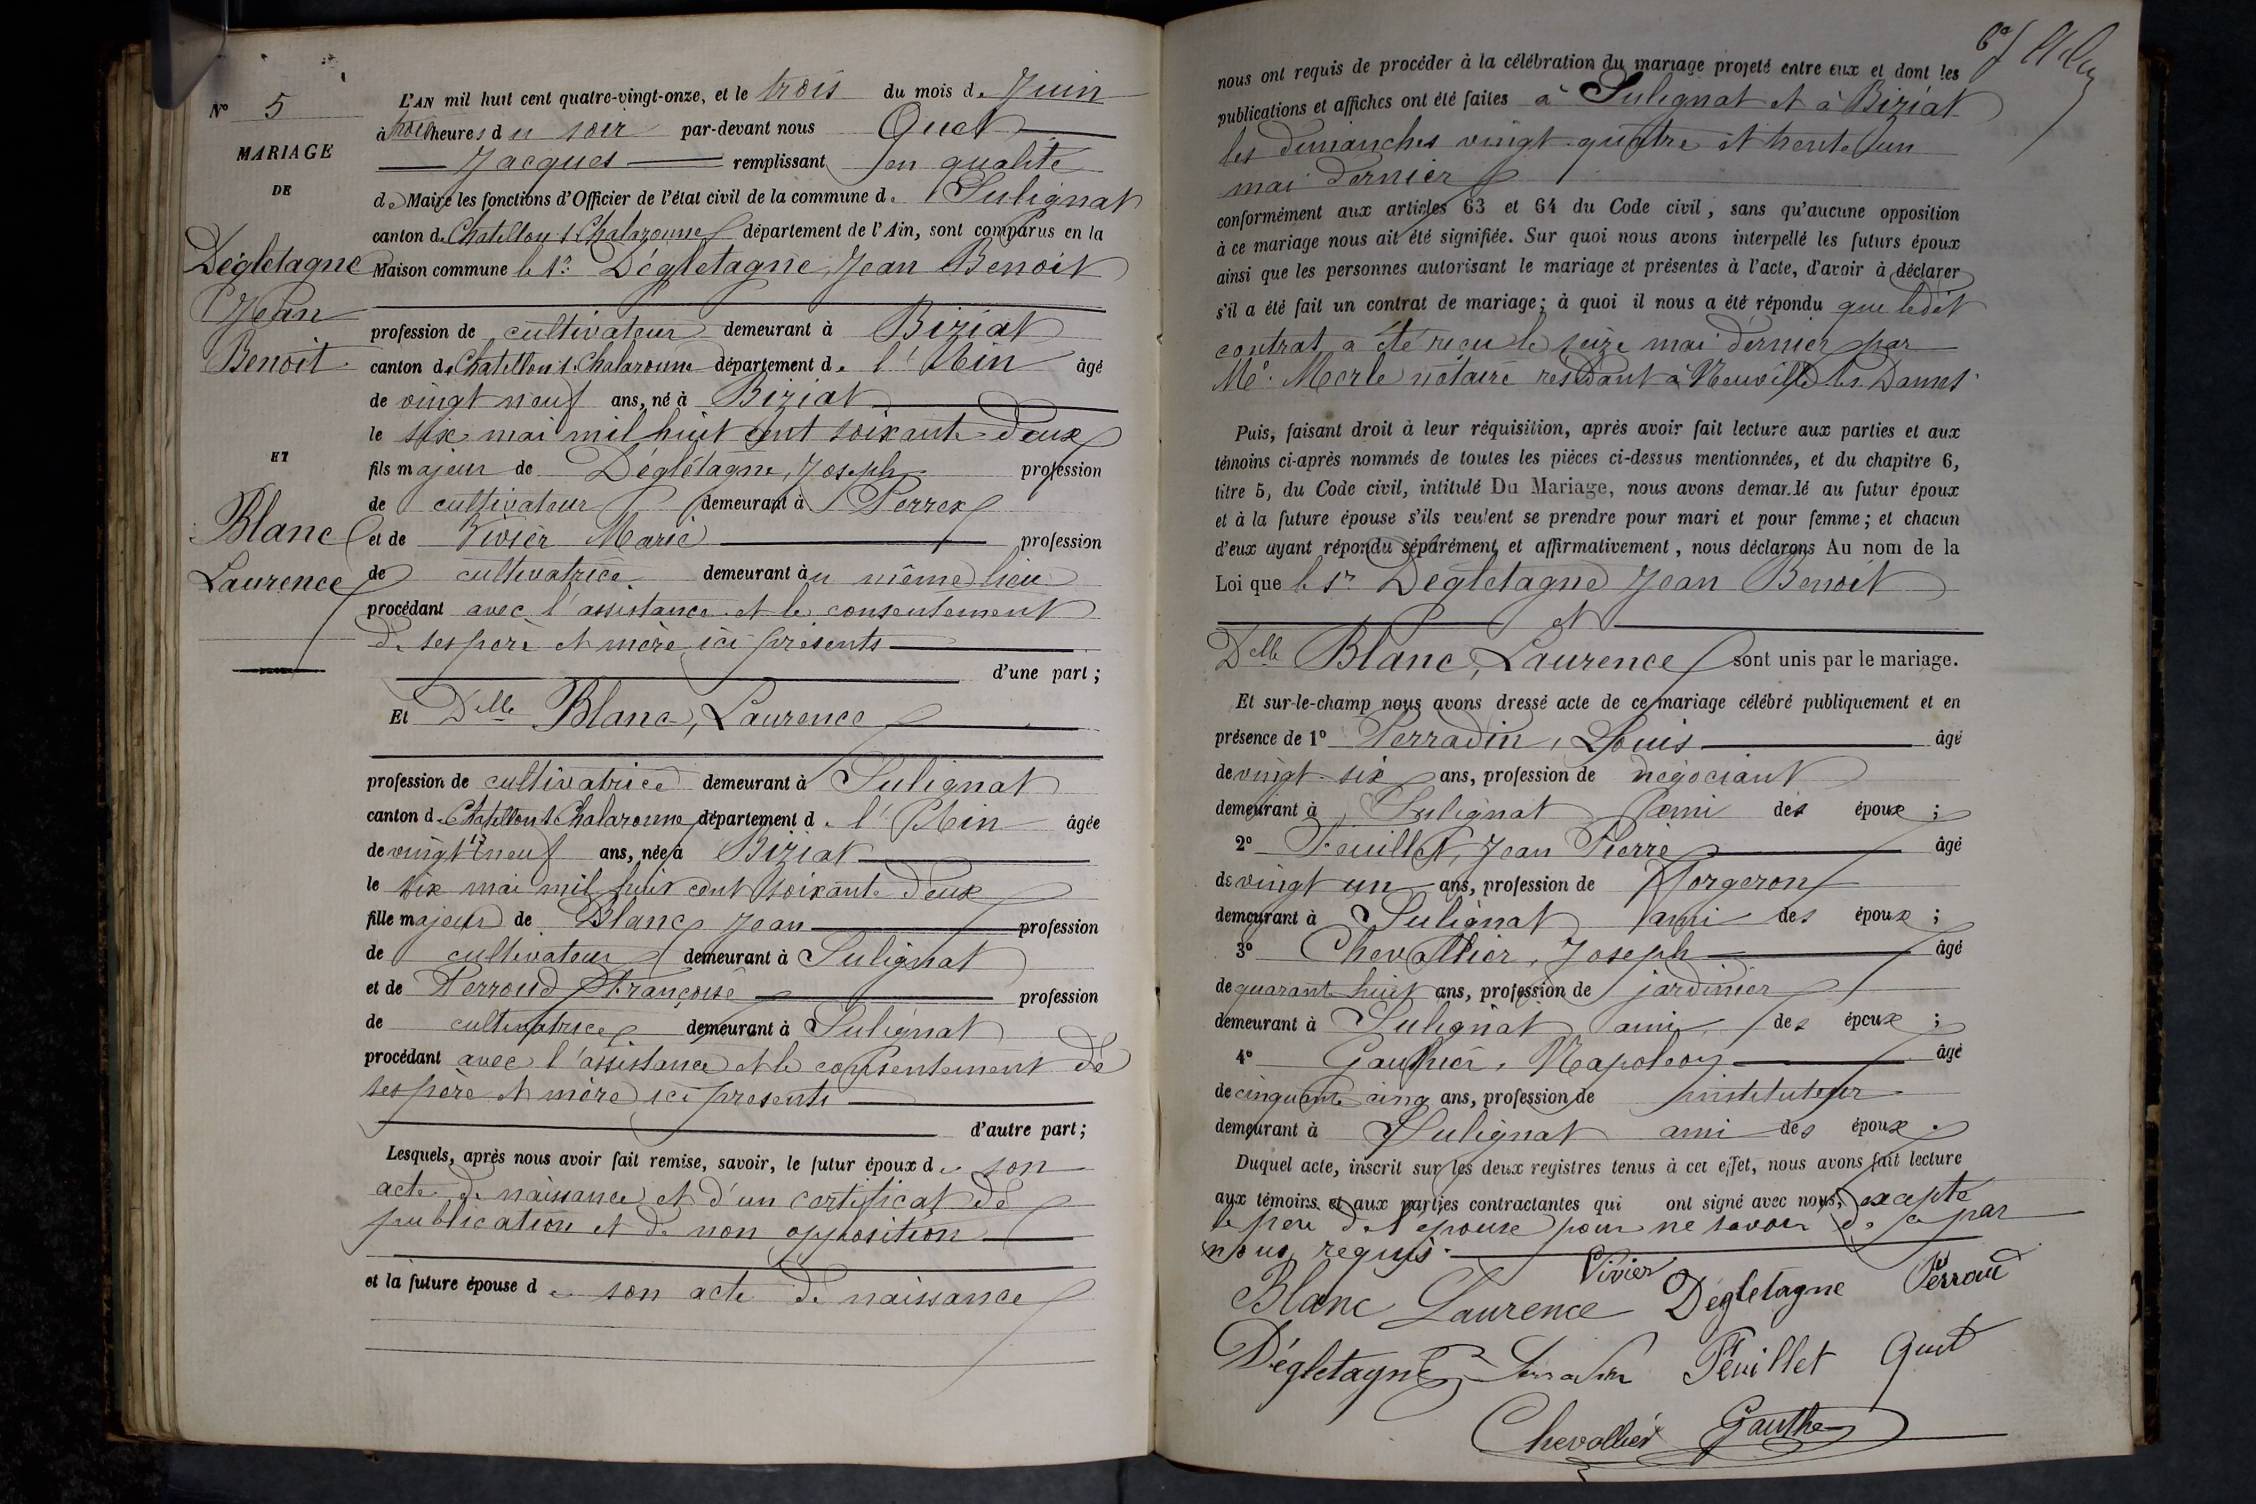 N° 5
MARIAGE
DE
Dégletagne
Jean
Benoit
ET
Blanc
Laurence
L'AN mil huit cent quatre-vingt-onze, et le trois du mois de Juin
à trois heures du soir par-devant nous Quet
Jacques remplissant en qualité
de Maire les fonctions d'Officier de l'état civil de la commune de Sulignat
canton de Chatillon s. Chalaronne département de l'Ain, sont comparus en la
Maison commune le Sr. Dégletagne, Jean Benoit
profession de cultivateur demeurant à Biziat
canton de Chatillon s. Chalaronne département de l'Ain âgé
de vingt neuf ans, né à Biziat
le six mai mil huit cent soixante deux
fils majeur de Dégletagne, Joseph profession
de cultivateur demeurant à Perrex
et de Vivier Marie profession
de cultivatrice demeurant au même lieu
procédant avec l'assistance et le consentement
de ses père et mère ici présents
d'une part;
Et Delle Blanc, Laurence
profession de cultivatrice demeurant à Sulignat
canton de Chatillon s. Chalaronne département de l'Ain âgée
de vingt neuf ans, née à Biziat
le six mai mil huit cent soixante deux
fille majeure de Blanc Jean profession
de cultivateur demeurant à Sulignat
et de Perroud Françoise profession
de cultivatrice demeurant à Sulignat
procédant avec l'assistance et le consentement de
ses père et mère ici présents
d'autre part;
Lesquels, après nous avoir fait remise, savoir, le futur époux de son
acte de naissance et d'un certificat de
publication et de non opposition
et la future épouse de son acte de naissance
nous ont requis de procéder à la célébration du mariage projeté entre eux et dont les
publications et affiches ont été faites à Sulignat et à Biziat
les dimanches vingt-quatre et trente un
mai dernier
conformément aux articles 63 et 64 du Code civil, sans qu'aucune opposition
à ce mariage nous ait été signifiée. Sur quoi nous avons interpellé les futurs époux
ainsi que les personnes autorisant le mariage et présentes à l'acte, d'avoir à déclarer
s'il a été fait un contrat de mariage; à quoi il nous a été répondu que ledit
contrat a été reçu le seize mai dernier par
Me. Merle notaire résidant à Neuville les Dames
Puis, faisant droit à leur réquisition, après avoir fait lecture aux parties et aux
témoins ci-après nommés de toutes les pièces ci-dessus mentionnées, et du chapitre 6,
titre 5, du Code civil, intitulé Du Mariage, nous avons demandé au futur époux
et à la future épouse s'ils veulent se prendre pour mari et pour femme; et chacun
d'eux ayant répondu séparément et affirmativement, nous déclarons Au nom de la
Loi que le Sr Dégletagne Jean Benoit
et
Delle Blanc, Laurence sont unis par le mariage.
Et sur-le-champ nous avons dressé acte de ce mariage célébré publiquement et en
présence de 1° Serradin, Louis âgé
de vingt-six ans, profession de négociant
demeurant à Sulignat ami des époux;
2° Feuillet, Jean Pierre âgé
de vingt un ans, profession de forgeron
demeurant à Sulignat ami des époux;
3° Chevallier, Joseph âgé
de quarante huit ans, profession de jardinier
demeurant à Sulignat ami des époux;
4° Gauthier, Napoléon âgé
de cinquante cinq ans, profession de instituteur
demeurant à Sulignat ami des époux.
Duquel acte, inscrit sur les deux registres tenus à cet effet, nous avons fait lecture
aux témoins et aux parties contractantes qui ont signé avec nous, excepté
le père de l'épouse pour ne savoir de ce par
nous requis.
Vivier
Blanc Laurence Dégletagne Perroud
Dégletagne Feuillet Quet
Chevallier Gauthier